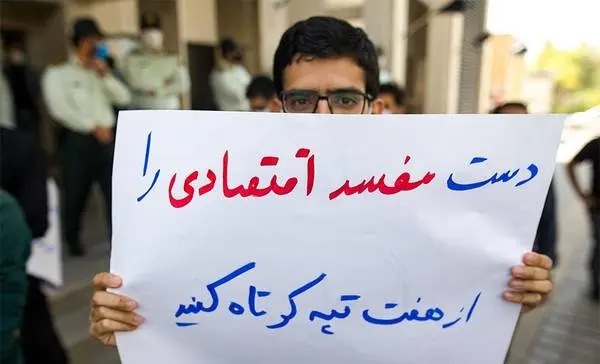 دست مفسد اقتصادی را
از هفت تپه کوتاه کنید